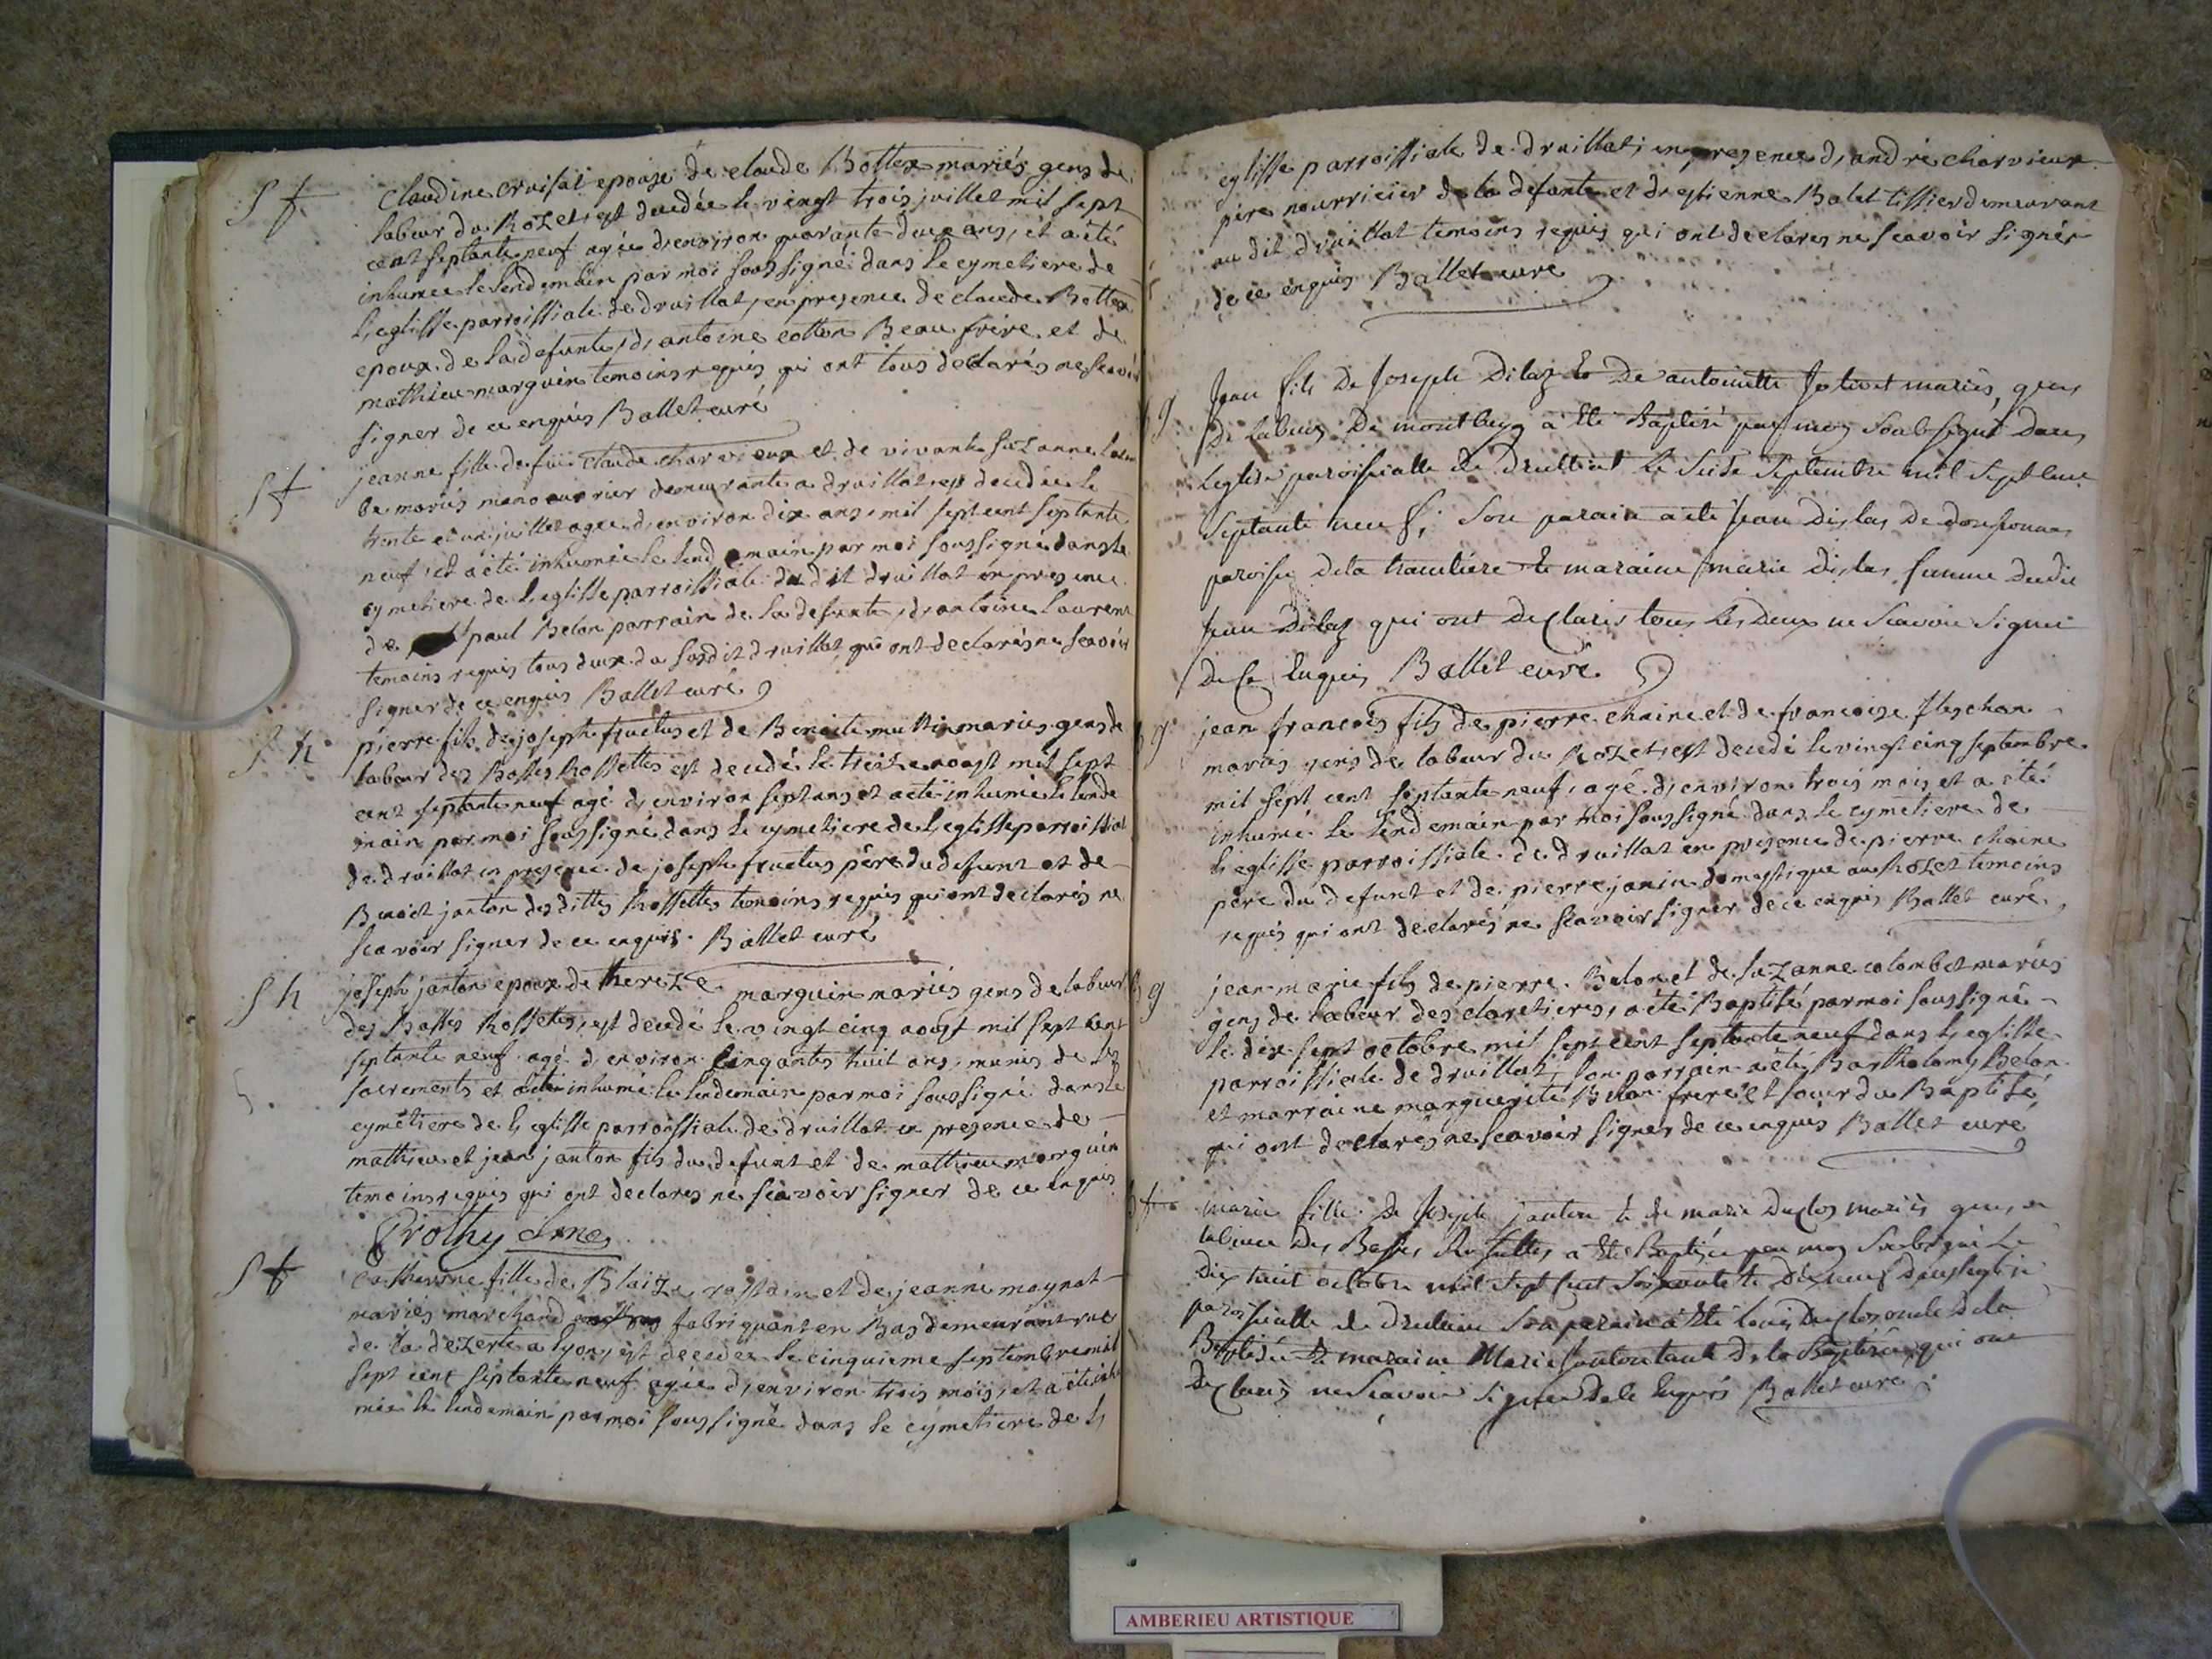 S f
Claudine cruisat epouse de claude Bottex mariés gens de
labeur du Rozet, est decedée le vingt trois juillet mil sept
cent septante neuf agée d'environ quarante deux ans, et a été
inhumée le lendemain par moi soussigné dans le cymetiere de
l'eglisse parroissiale de druillat, en presence de claude Bottex
epoux de la defunte, d'antoine cotton Beau frere et de
mathieu marguin temoins requis qui ont tous declarés ne scavoir
signer de ce enquis Ballet curé
S f
jeanne fille de füe claude charvieux et de vivante suzanne
mariés manouvrier demeurante a druillat est decedée le
trente et un juillet agée d'environ dix ans, mil sept cent septante
neuf, et a été inhumée le lendemain par moi soussigné dans le
cymetiere de l'eglisse parroissiale du dit druillat en presence
de paul Belon parrain de la defunte, d'antoine laurent
temoins requis tous deux du susdit druillat qui ont declarés ne scavoir
signer de ce enquis Ballet curé
S h
pierre fils de joseph fructus et de Benoite muttin mariés gens de
labeur des Basses Rossettes est decedé le treize aoust mil sept
cent septante neuf agé d'environ sept ans et a été inhumé le lende
main par moi soussigné dans le cymetiere de l'eglisse parroissial
de druillat en presence de joseph fructus père du defunt et de
Benoit janton des dittes Rossettes temoins requis qui ont declarés ne
scavoir signer de ce enquis. Ballet curé
S h
joseph janton epoux de thereze marguin mariés gens de labeur
des Basses Rossettes, est decedé le vingt cinq août mil sept cent
septante neuf agé d'environ cinquante huit ans, munis de ses
sacrements et a été inhumé le lendemain par moi soussigné dans le
cymetiere de l'eglisse parroissiale de druillat en presence de
mathieu et jean janton fils du defunt et de mathieu marguin
temoins requis qui ont declares ne scavoir signer de ce enquis
S f
Catherine fille de Blaize rostain et de jeanne maynat
mariés marchand fabriquant en Bas demeurant rue
de la dezerte a lyon, est decedée le cinquieme septembre mil
sept cent septante neuf agée d'environ trois mois, et a été inhu
mée le lendemain par moi soussigné dans le cymetiere de l'
eglisse parroissiale de druillat, en presence d'andré charvieux
père nourricier de la defunte et d'estienne Balet tissier demeurant
au dit druillat temoins requis qui ont declares ne scavoir signer
de ce enquis Ballet curé
g
Jean fils De Joseph Dilaz et De antoinette Jolivet mariés, gens
De labeur De montbegg a ete Baptisé par moy soubsigné dans
Leglise paroissialle de Druilliat le seise Septembre mil sept cent
septante neuf; son parain a ete Jean Dislas De
paroisse Dela tranclière et maraine marie Dislas femme dudit
Jean Dilaz qui ont Declarés tous les deux ne scavoir signer
De ce Enquis Ballet curé
g
jean francois fils de pierre chaine et de francoise fleschan
mariés gens de labeur du Rozet, est decedé le vingt cinq septembre
mil sept cent septante neuf, agé d'environ trois mois et a été
inhumé le lendemain par moi soussigné dans le cymetiere de
l'eglisse parroissiale de druillat en presence de pierre chaine
père du defunt et de pierre janin domestique au Rozet temoins
requis qui ont declarés ne scavoir signer de ce enquis Ballet curé
B g
jean marie fils de pierre Belon et de suzanne colombet mariés
gens de labeur des claretieres, a été Baptisé par moi soussigné
le dix sept octobre mil sept cent septante neuf dans l'eglisse
parroissiale de druillat; son parrain a été Bartholomy Belon
et marraine marguerite Belon frere et soeur du Baptisé
qui ont declarés ne scavoir signer de ce enquis Ballet curé
b f
marie fille de Joseph janton et de marie Duclos mariés gens de
labeur Des Basses Rosettes, a ete Baptisée par moy Soubsigné Le
Dix huit octobre mil sept cent soixante et dix neuf dans leglise
paroissialle de Druliat Son perain a ete louis Duclos oncle De la
Baptisée et maraine Marie Janton tante De la Baptisée, qui ont
Declarés ne scavoir signer De ce Enquis Ballet curé
AMBERIEU ARTISTIQUE